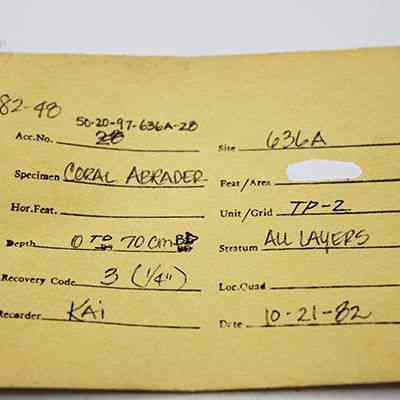 82-48
50-20-97-636A-28
Acc.No. 28 Site 636A
Specimen CORAL ABRADER Feat/Area
Hor.Feat. Unit/Grid TP-2
Depth 0 TO 70 CM BD Stratum ALL LAYERS
Recovery Code 3 (1/4") Loc.Quad
Recorder KAI Date 10-21-82